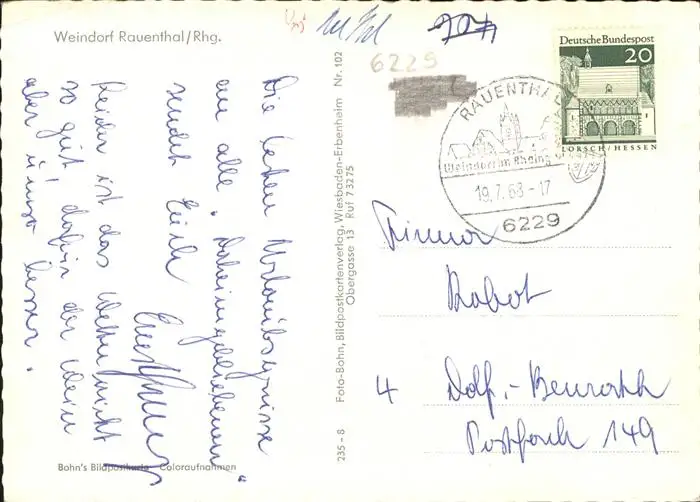 Weindorf Rauenthal/Rhg.
6229
Deutsche Bundespost
20
LORSCH/HESSEN
RAUENTHAL
Weindorf im Rheingau
19.7.68-17
6229
Die besten Urlaubsgrüsse
an alle "Daheimgebliebenen"
sendet Euch
Leider ist das Wetter nicht
so gut, dafür der Wein
aber umso besser.
Foto-Bohn, Bildpostkartenverlag, Wiesbaden-Erbenheim Nr. 102
Obergasse 13 Ruf 73275
235 - 8
Firma
Robot
4 Ddf.-Benrath
Postfach 149
Bohn's Bildpostkarte Coloraufnahmen